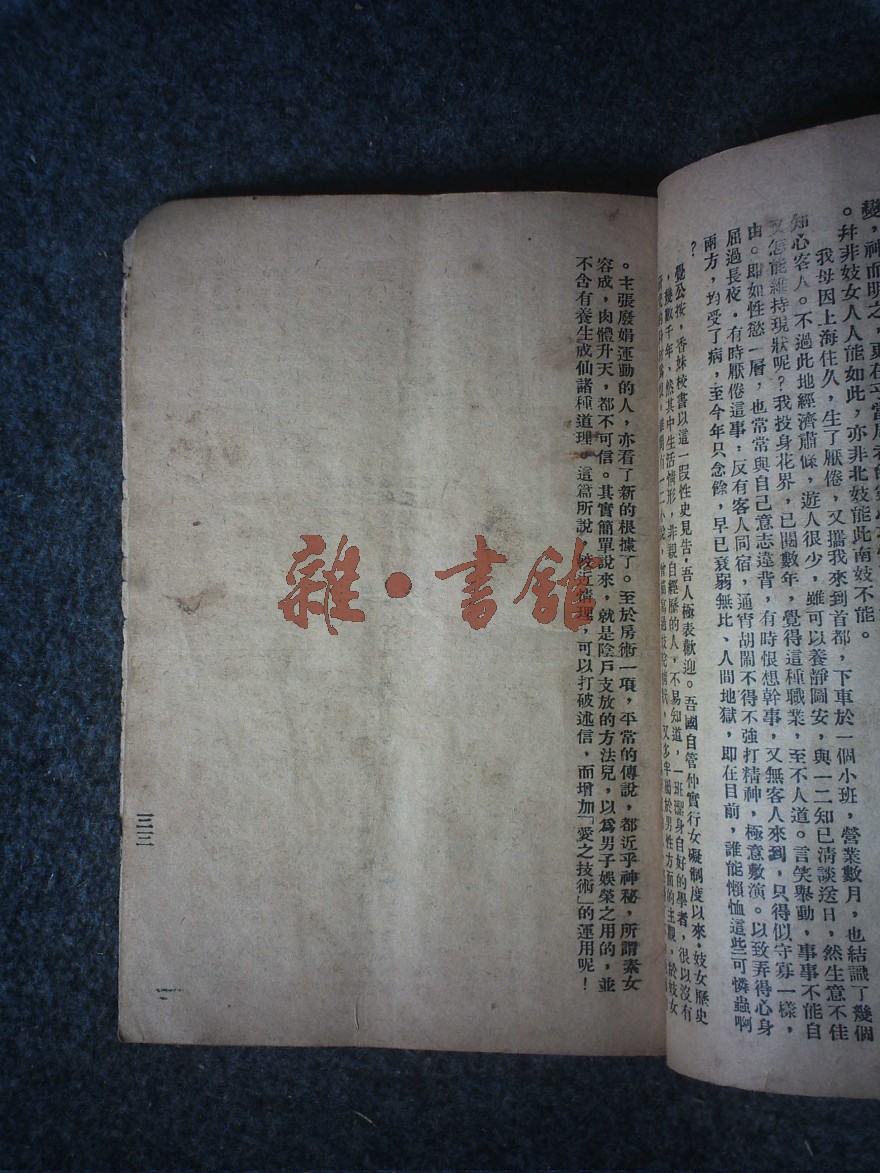 變，神而明之，更在乎當局者
。幷非妓女人人能如此，亦非北妓能此南妓不能。
我母因上海住久，生了厭倦，又攜我來到首都，下車於一個小班，營業數月，也結識了幾個
知心客人。不過此地經濟蕭條，遊人很少，雖可以養靜圖安，與一二知己清談送日，然生意不佳
又怎能維持現狀呢？我投身花界，已閱數年，覺得這種職業，至不人道。言笑舉動，事事不能自
由。即如性慾一層，也常常與自己意志違背，有時恨想幹事，又無客人來到，只得似守寡一樣，
屈過長夜。有時厭倦這事，反有客人同宿，通宵胡鬧不得不強打精神，極意敷演。以致弄得心身
兩方，均受了病，至今年只念餘，早已衰弱無比、人間地獄，即在目前，誰能懶恤這些可憐蟲啊
？
覺公按，香妹校書以這一叚性史見告，吾人極表歡迎。吾國自管仲實行女礙制度以來，妓女歷史
，幾數千年、然其中生活情形，非親自經歷的人，不易知道，一班潔身自好的學者，很以沒有
。主張廢娼運動的人，亦看了新的根據了。至於房術一項，平常的傳說，都近乎神秘，所謂素女
容成，肉體升天，都不可信。其實簡單說來，就是陰戶支放的方法兒，以爲男子娛榮之用的，並
不含有養生成仙諸種道理。這篇所說，較近情理，可以打破述信，而增加「愛之技術」的運用呢！
三二
雜·書館